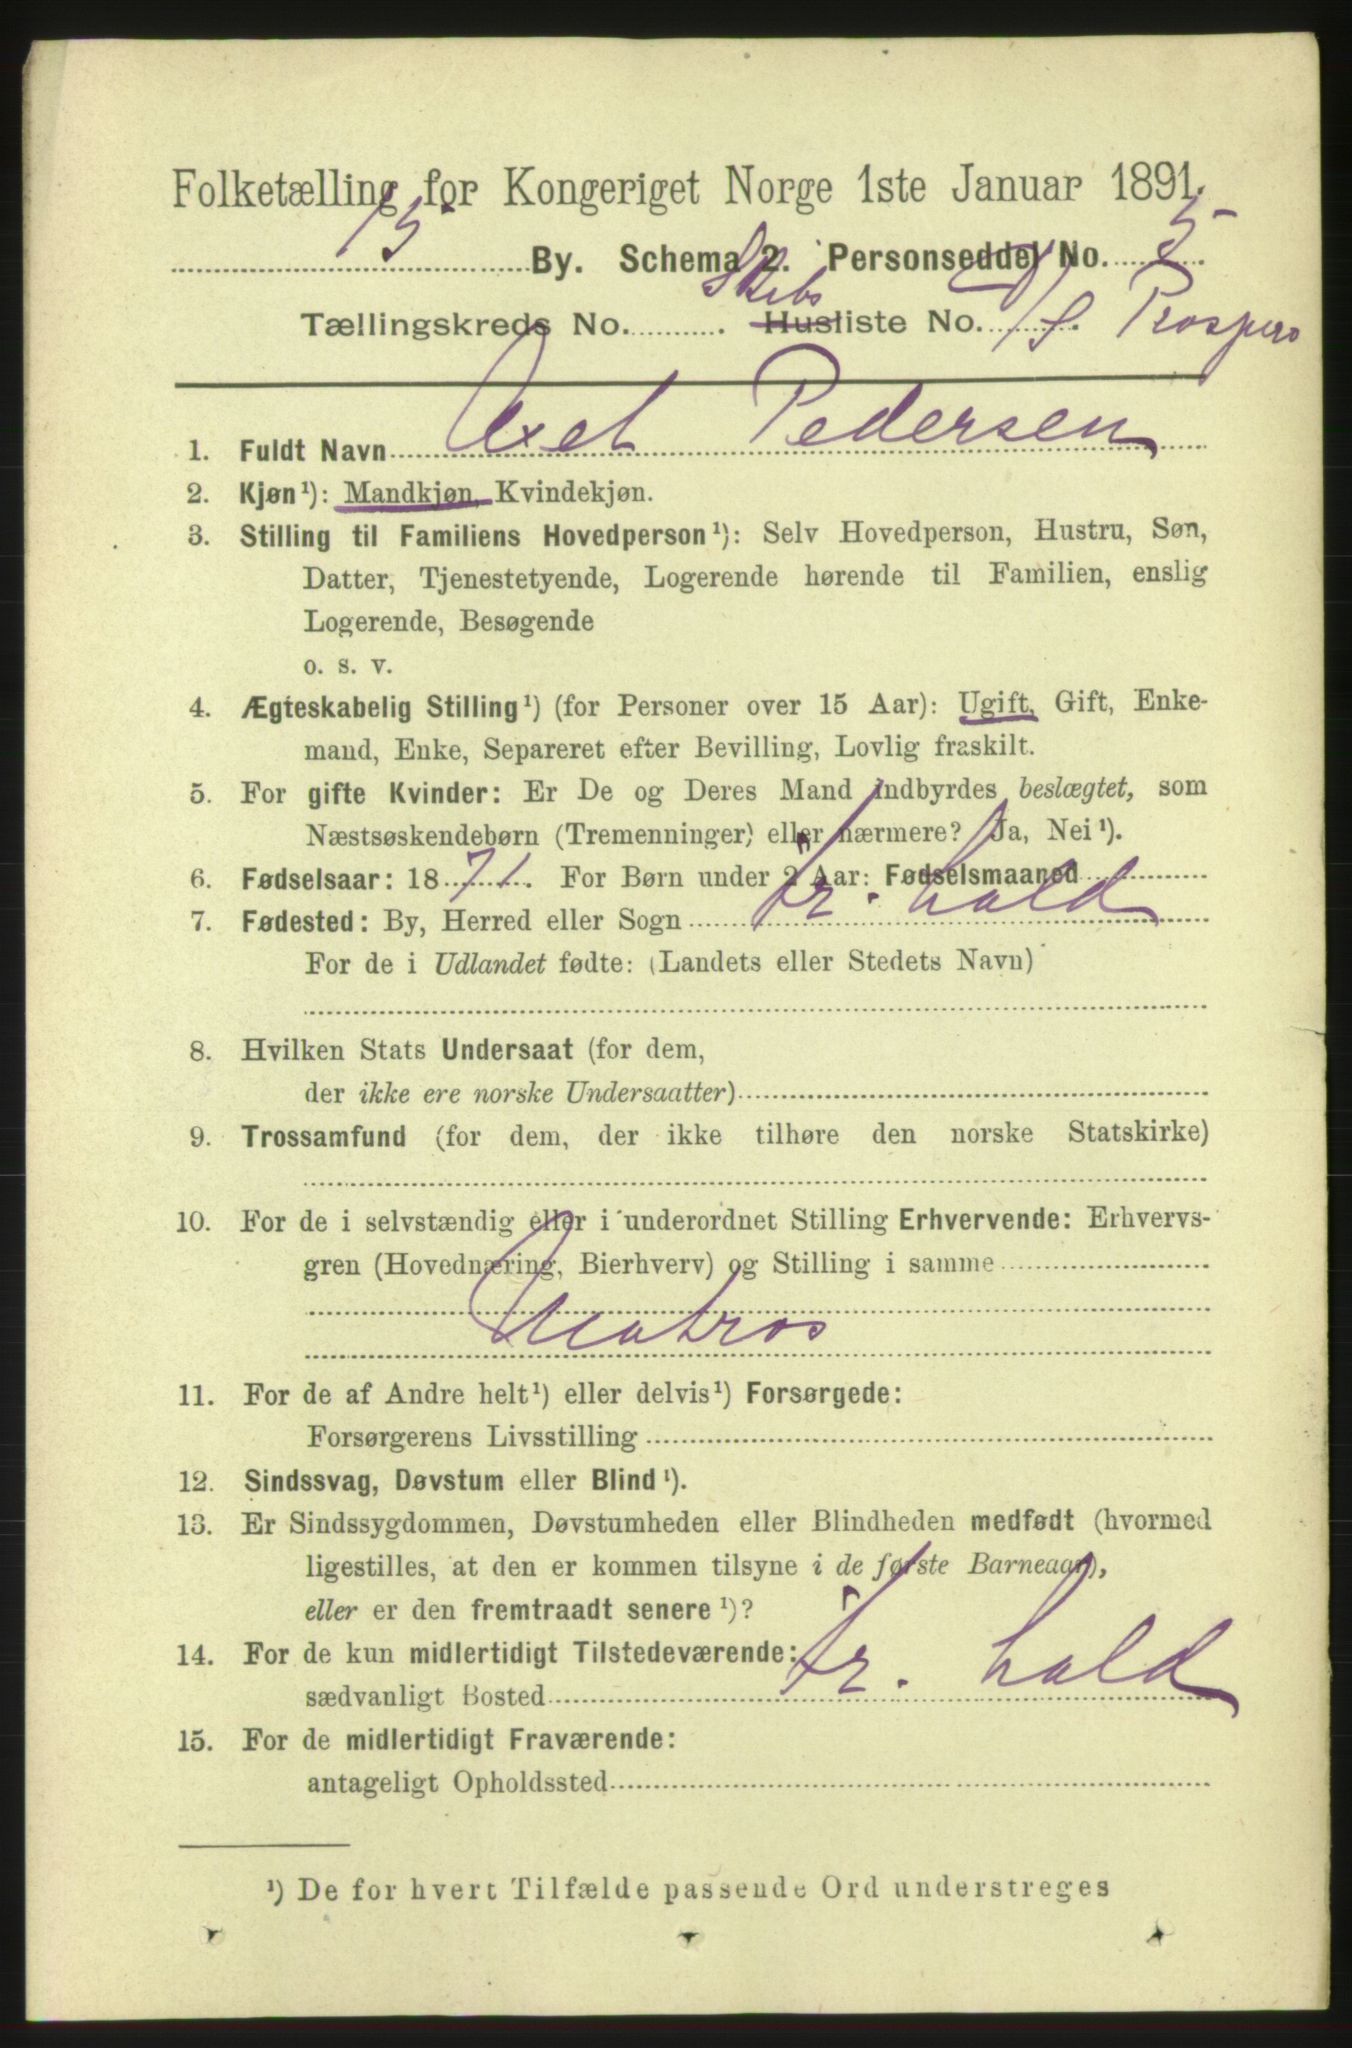 Folketælling for Kongeriget Norge 1ste Januar 1891.
15 By. Schema 2. Personseddel No. 5
Tællingskreds No. .......... Skibs Husliste No. D/S Prospero
1. Fuldt Navn Axel Pedersen
2. Kjøn¹): Mandkjøn, Kvindekjøn.
3. Stilling til Familiens Hovedperson¹): Selv Hovedperson, Hustru, Søn,
Datter, Tjenestetyende, Logerende hørende til Familien, enslig
Logerende, Besøgende
o. s. v.
4. Ægteskabelig Stilling¹) (for Personer over 15 Aar): Ugift, Gift, Enke-
mand, Enke, Separeret efter Bevilling, Lovlig fraskilt.
5. For gifte Kvinder: Er De og Deres Mand indbyrdes beslægtet, som
Næstsøskendebørn (Tremenninger) eller nærmere? Ja, Nei¹).
6. Fødselsaar: 1871. For Børn under 2 Aar: Fødselsmaaned
7. Fødested: By, Herred eller Sogn Fr. hald
For de i Udlandet fødte: (Landets eller Stedets Navn)
8. Hvilken Stats Undersaat (for dem,
der ikke ere norske Undersaatter)
9. Trossamfund (for dem, der ikke tilhøre den norske Statskirke)
10. For de i selvstændig eller i underordnet Stilling Erhvervende: Erhvervs-
gren (Hovednæring, Bierhverv) og Stilling i samme
Matros
11. For de af Andre helt¹) eller delvis¹) Forsørgede:
Forsørgerens Livsstilling
12. Sindssvag, Døvstum eller Blind¹).
13. Er Sindssygdommen, Døvstumheden eller Blindheden medfødt (hvormed
ligestilles, at den er kommen tilsyne i de første Barneaar),
eller er den fremtraadt senere¹)?
14. For de kun midlertidigt Tilstedeværende:
sædvanligt Bosted Fr. hald
15. For de midlertidigt Fraværende:
antageligt Opholdssted
¹) De for hvert Tilfælde passende Ord understreges